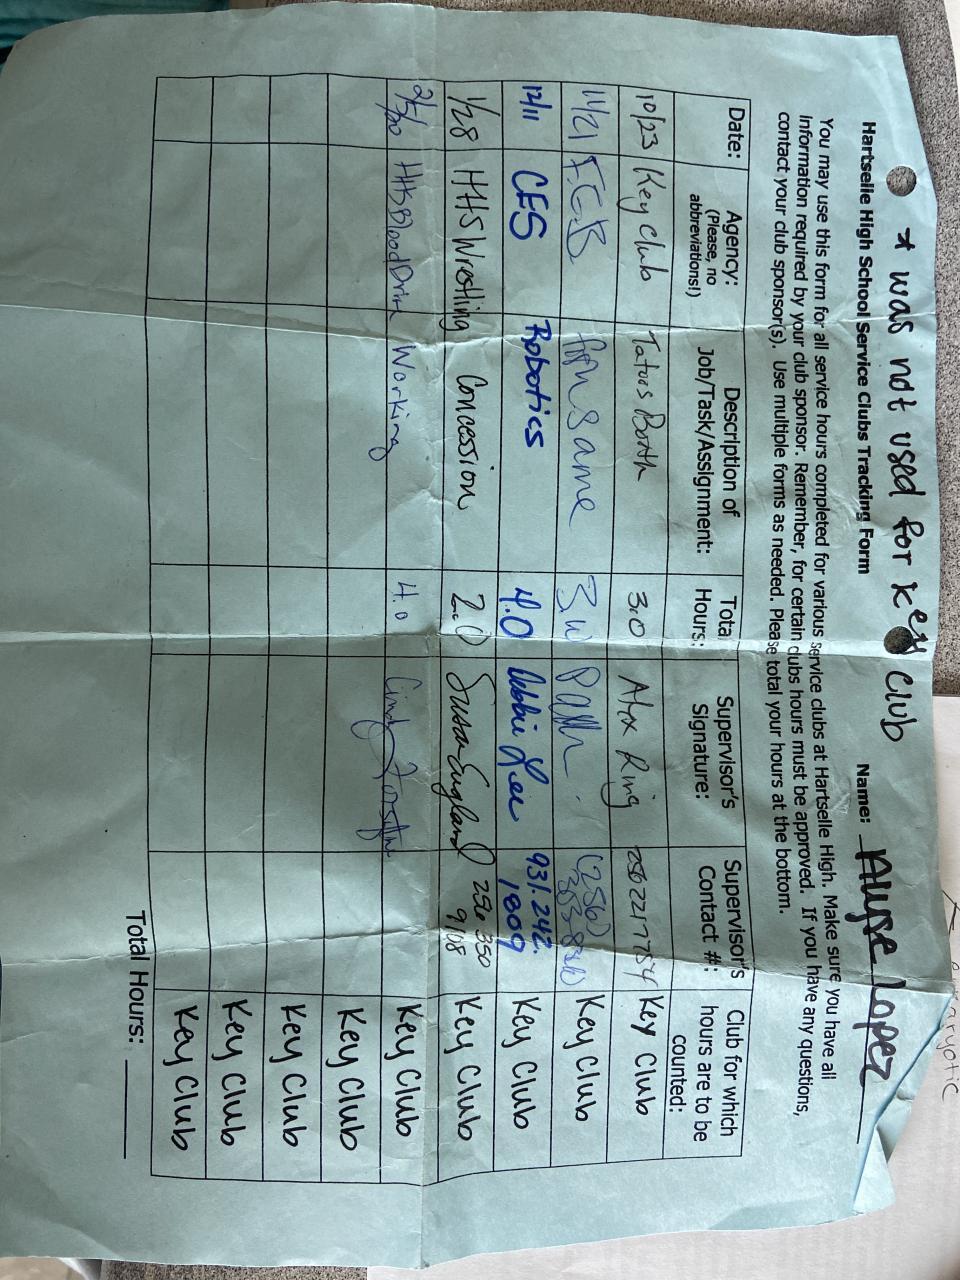 * was not used for key club
Hartselle High School Service Clubs Tracking Form Name: Alyse Lopez
You may use this form for all service hours completed for various service clubs at Hartselle High. Make sure you have all
information required by your club sponsor. Remember, for certain clubs hours must be approved. If you have any questions,
contact your club sponsor(s). Use multiple forms as needed. Please total your hours at the bottom.
Date: Agency: (Please, no abbreviations!) Description of Job/Task/Assignment: Total Hours: Supervisor's Signature: Supervisor's Contact #: Club for which hours are to be counted:
10/23 Key Club Tatoos Booth 3.0 Alex Ring 256 221 7754 Key Club
11/21 F.C.B Key Club
12/11 CES Robotics 4.0 Debbie Lee 931.242.1809 Key Club
1/28 HHS Wrestling Concession 2.0 Susan England 256 350 9108 Key Club
2/5/20 HHS Blood Drive Working 4.0 Cindy Key Club
Key Club
Key Club
Key Club
Key Club
Total Hours:
karyotic